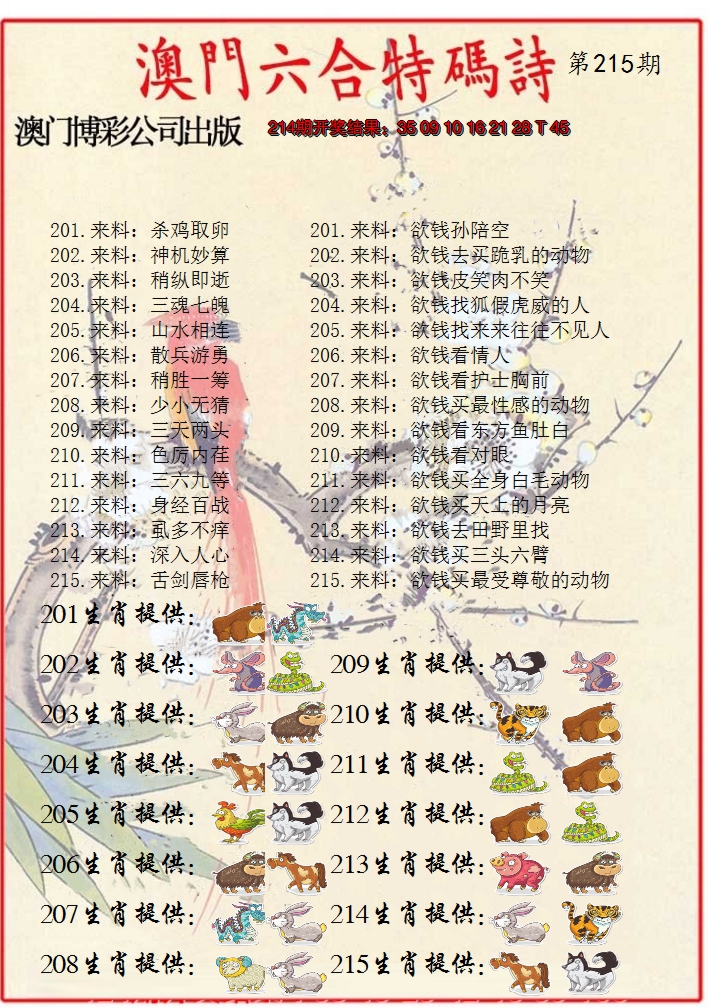 澳門六合特碼詩 第215期
澳门博彩公司出版 214期开奖结果：35 09 10 16 21 28 T 45
201.来料：杀鸡取卵 201.来料：欲钱孙陪空
202.来料：神机妙算 202.来料：欲钱去买跪乳的动物
203.来料：稍纵即逝 203.来料：欲钱皮笑肉不笑
204.来料：三魂七魄 204.来料：欲钱找狐假虎威的人
205.来料：山水相连 205.来料：欲钱找来来往往不见人
206.来料：散兵游勇 206.来料：欲钱看情人
207.来料：稍胜一筹 207.来料：欲钱看护士胸前
208.来料：少小无猜 208.来料：欲钱买最性感的动物
209.来料：三天两头 209.来料：欲钱看东方鱼肚白
210.来料：色厉内荏 210.来料：欲钱看对眼
211.来料：三六九等 211.来料：欲钱买全身白毛动物
212.来料：身经百战 212.来料：欲钱买天上的月亮
213.来料：虱多不痒 213.来料：欲钱去田野里找
214.来料：深入人心 214.来料：欲钱买三头六臂
215.来料：舌剑唇枪 215.来料：欲钱买最受尊敬的动物
201生肖提供：
202生肖提供： 209生肖提供：
203生肖提供： 210生肖提供：
204生肖提供： 211生肖提供：
205生肖提供： 212生肖提供：
206生肖提供： 213生肖提供：
207生肖提供： 214生肖提供：
208生肖提供： 215生肖提供：